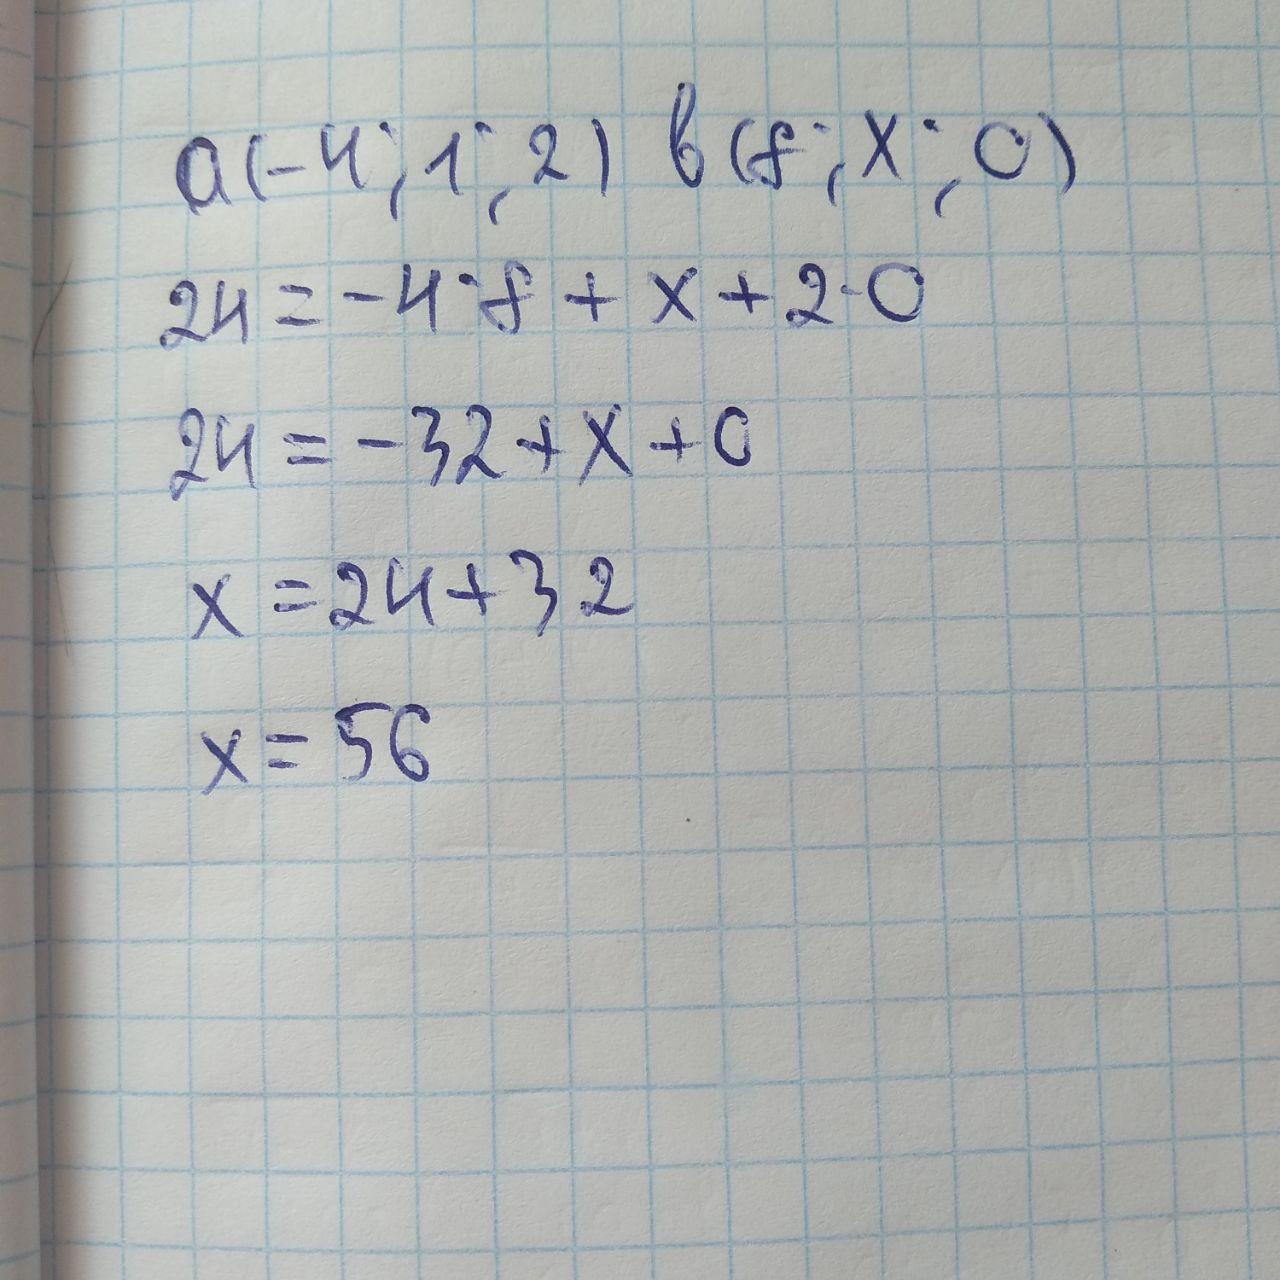 a(-4; 1; 2) b(8; x; 0)
24 = -4·8 + x + 2·0
24 = -32 + x + 0
x = 24 + 32
x = 56